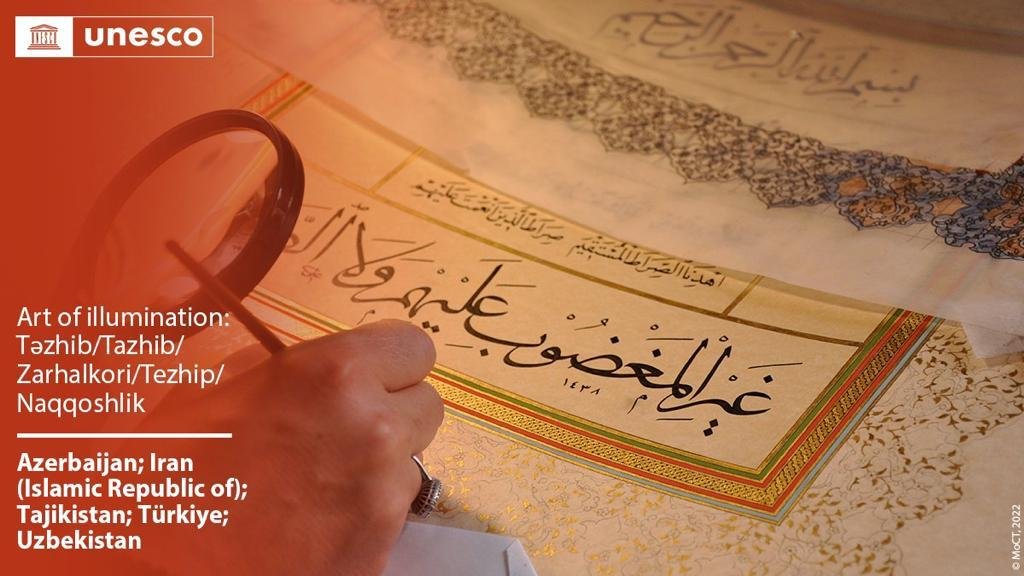 unesco
بسم الله الرحمن الرحيم
اهدنا الصراط المستقيم صراط الذين انعمت عليهم
غَيْرِ الْمَغْضُوبِ عَلَيْهِمْ وَلَا
١٤٣٨
Art of illumination:
Təzhib/Tazhib/
Zarhalkori/Tezhip/
Naqqoshlik
Azerbaijan; Iran
(Islamic Republic of);
Tajikistan; Türkiye;
Uzbekistan
© MoCT, 2022